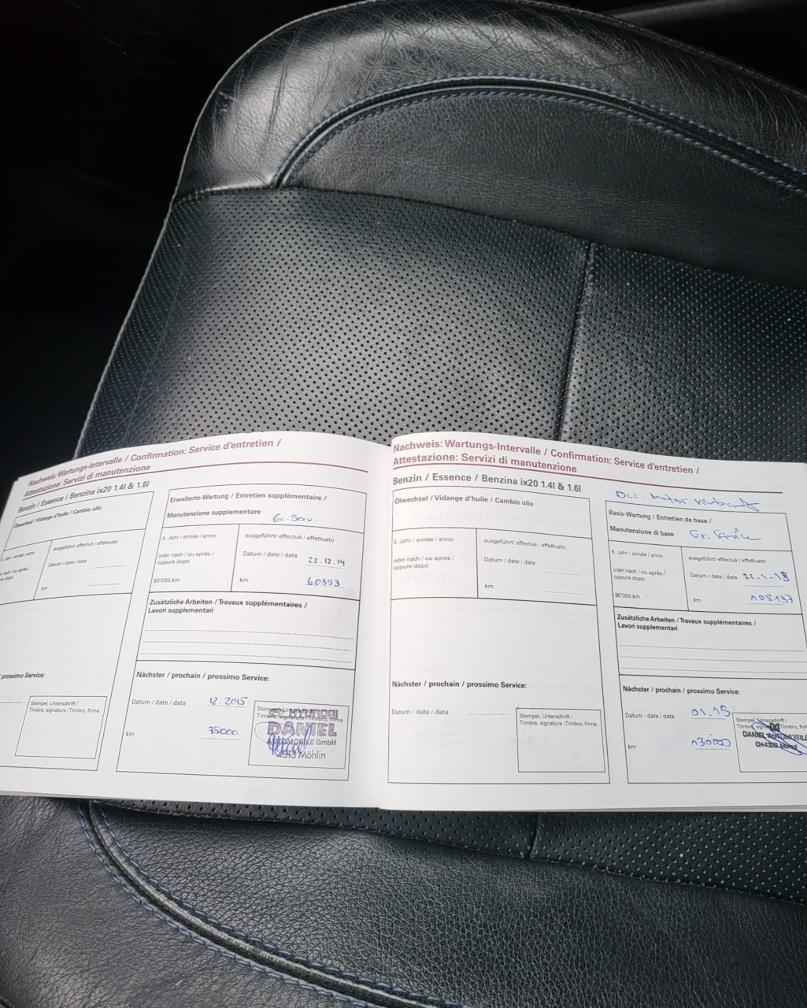 Nachweis: Wartungs-Intervalle / Confirmation: Service d'entretien /
Attestazione: Servizi di manutenzione
Benzin / Essence / Benzina ix20 1.4l & 1.6l
Ölwechsel / Vidange d'huile / Cambio olio
Jahr / année / anno
ausgeführt/ effectué / effettuato
oder nach / ou après /
oppure dopo
Datum / date / data
km
prossimo Service:
Stempel, Unterschrift /
Timbre, signature / Timbro, firma
Erweiterte-Wartung / Entretien supplémentaire /
Manutenzione supplementare
4. Jahr / année / anno
ausgeführt/ effectué / effettuato
oder nach / ou après /
oppure dopo
Datum / date / data 22.12.14
60'000 km
km 60393
Zusätzliche Arbeiten / Travaux supplémentaires /
Lavori supplementari
Nächster / prochain / prossimo Service:
Datum / date / data 12.2015
km 75000
Stempel, Unterschrift /
Timbre, signature / Timbro, firma
HYUNDAI
DANIEL
AUTOMOBILE GmbH
4313 Möhlin
Nachweis: Wartungs-Intervalle / Confirmation: Service d'entretien /
Attestazione: Servizi di manutenzione
Benzin / Essence / Benzina ix20 1.4l & 1.6l
Ölwechsel / Vidange d'huile / Cambio olio
Jahr / année / anno
ausgeführt/ effectué / effettuato
oder nach / ou après /
oppure dopo
Datum / date / data
km
Nächster / prochain / prossimo Service:
Datum / date / data
km
Stempel, Unterschrift /
Timbre, signature / Timbro, firma
Occ.
Basis-Wartung / Entretien de base /
Manutenzione di base Gr. Service
Jahr / année / anno
ausgeführt/ effectué / effettuato
oder nach / ou après /
oppure dopo
Datum / date / data 22.1.18
90'000 km
km
Zusätzliche Arbeiten / Travaux supplémentaires /
Lavori supplementari
Nächster / prochain / prossimo Service:
Datum / date / data
km
Stempel, Unterschrift /
Timbre, signature / Timbro, firma
DANIEL AUTOMOBILE